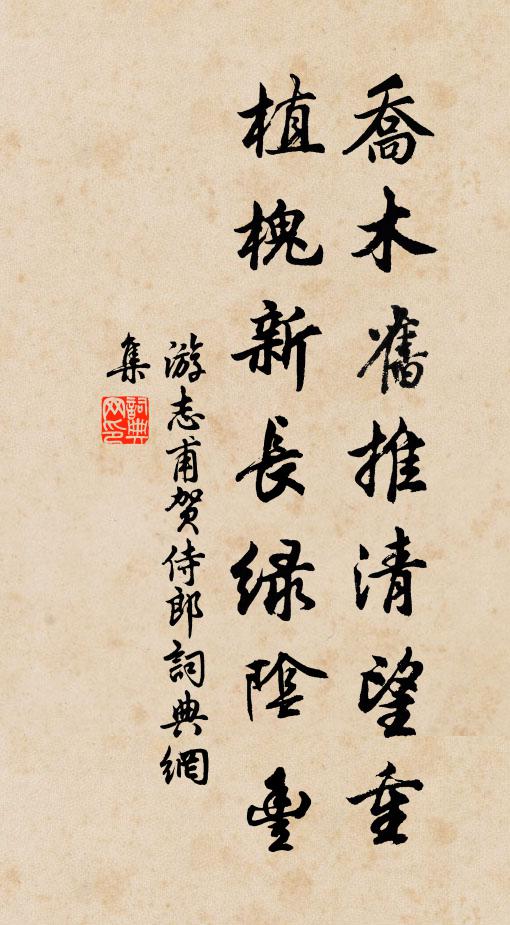 喬木舊推清望重
植槐新長緑陰豊
游志甫賀侍郎詞典網
集
詞典
网印